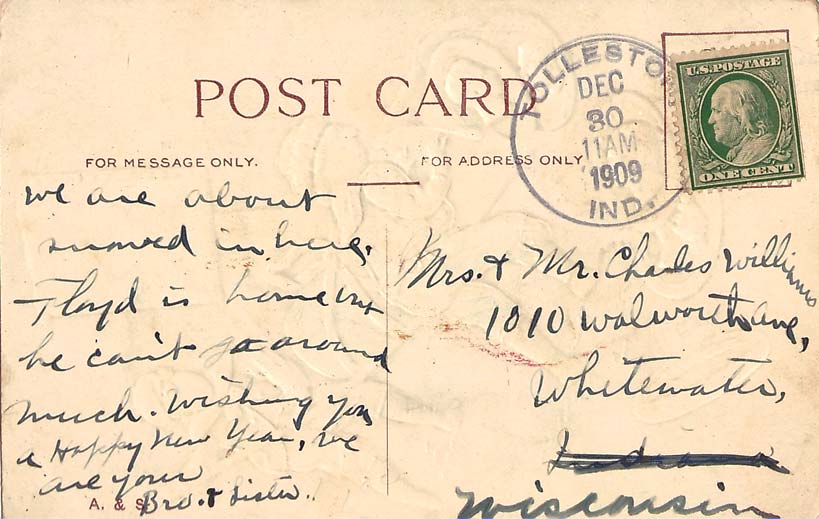 POST CARD
FOR MESSAGE ONLY.
FOR ADDRESS ONLY
TOLLESTO
DEC
30
11AM
1909
IND.
U.S. POSTAGE
ONE CENT
we are about
snowed in here,
Floyd is home but
he can't go around
much. Wishing you
a Happy New Year, we
are your
Bro. & Sister.
A. & S.
Mrs. & Mr. Charles Williams
1010 Walworth ave,
Whitewater,
Indiana
Wisconsin